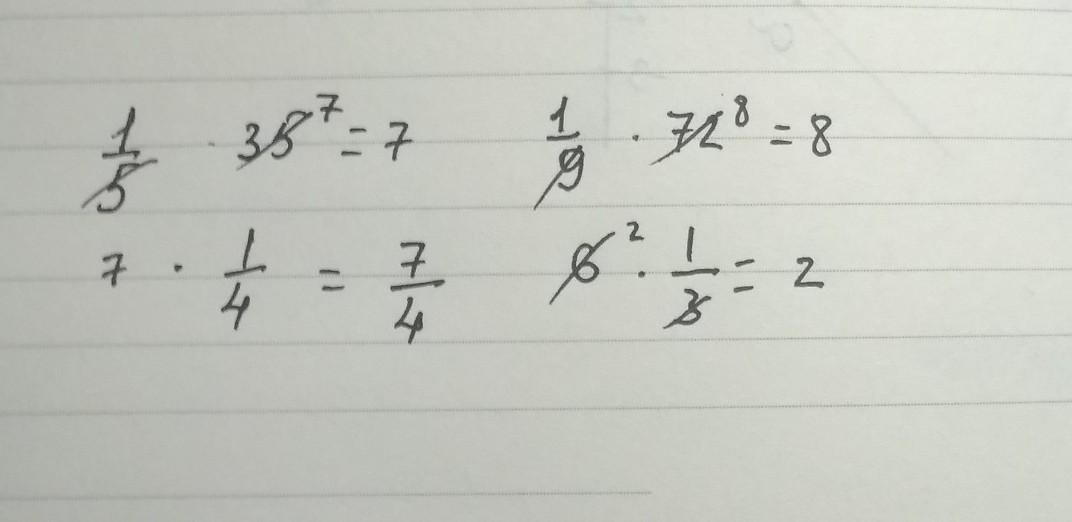 1/5 · 35 7 = 7 1/9 · 72 8 = 8
7 · 1/4 = 7/4 6 2 · 1/3 = 2